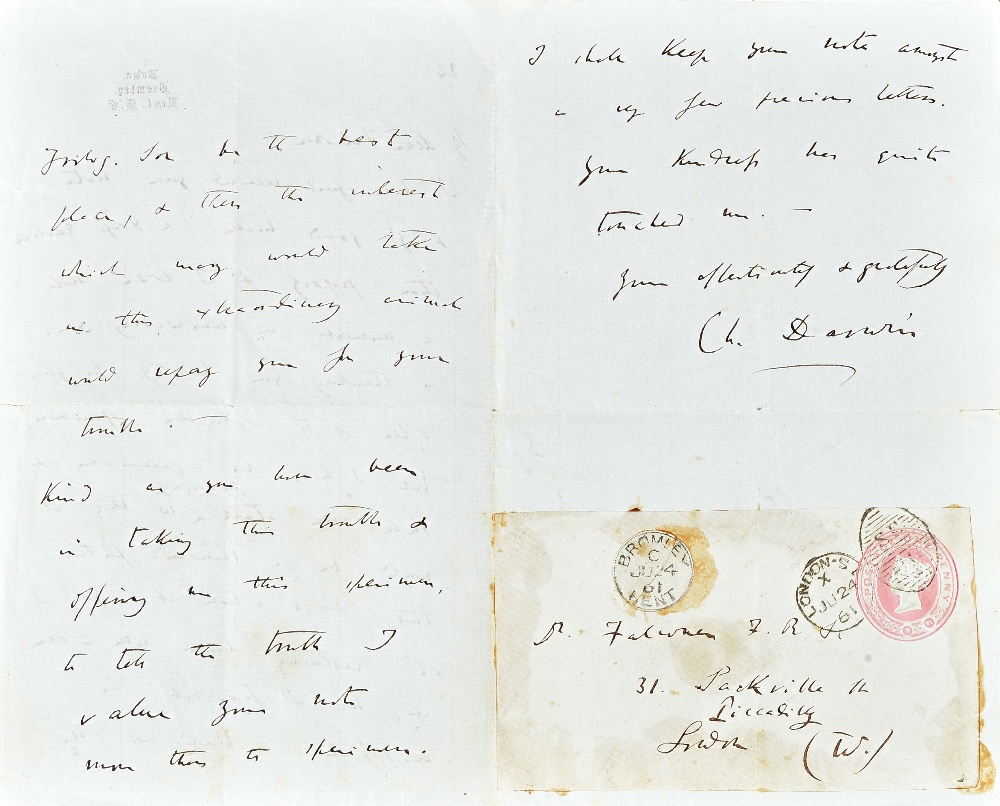 Zoolog. Soc. be the best
place, & then the interest
which many would take
in this extraordinary animal
would repay you for your
trouble. —
Kind as you have been
in taking this trouble &
offering me this specimen,
to tell the truth I
value your note
more than the specimen.
I shall keep your note amongst
a very few precious letters.
Your kindness has quite
touched me. —
Yours affectionately & gratefully
Ch. Darwin
BROMLEY
C
JU 24
61
KENT
LONDON-S
X
JU 24
61
PENNY
Dr. Falconer F. R. S.
31. Sackville St
Piccadilly
London (W.)